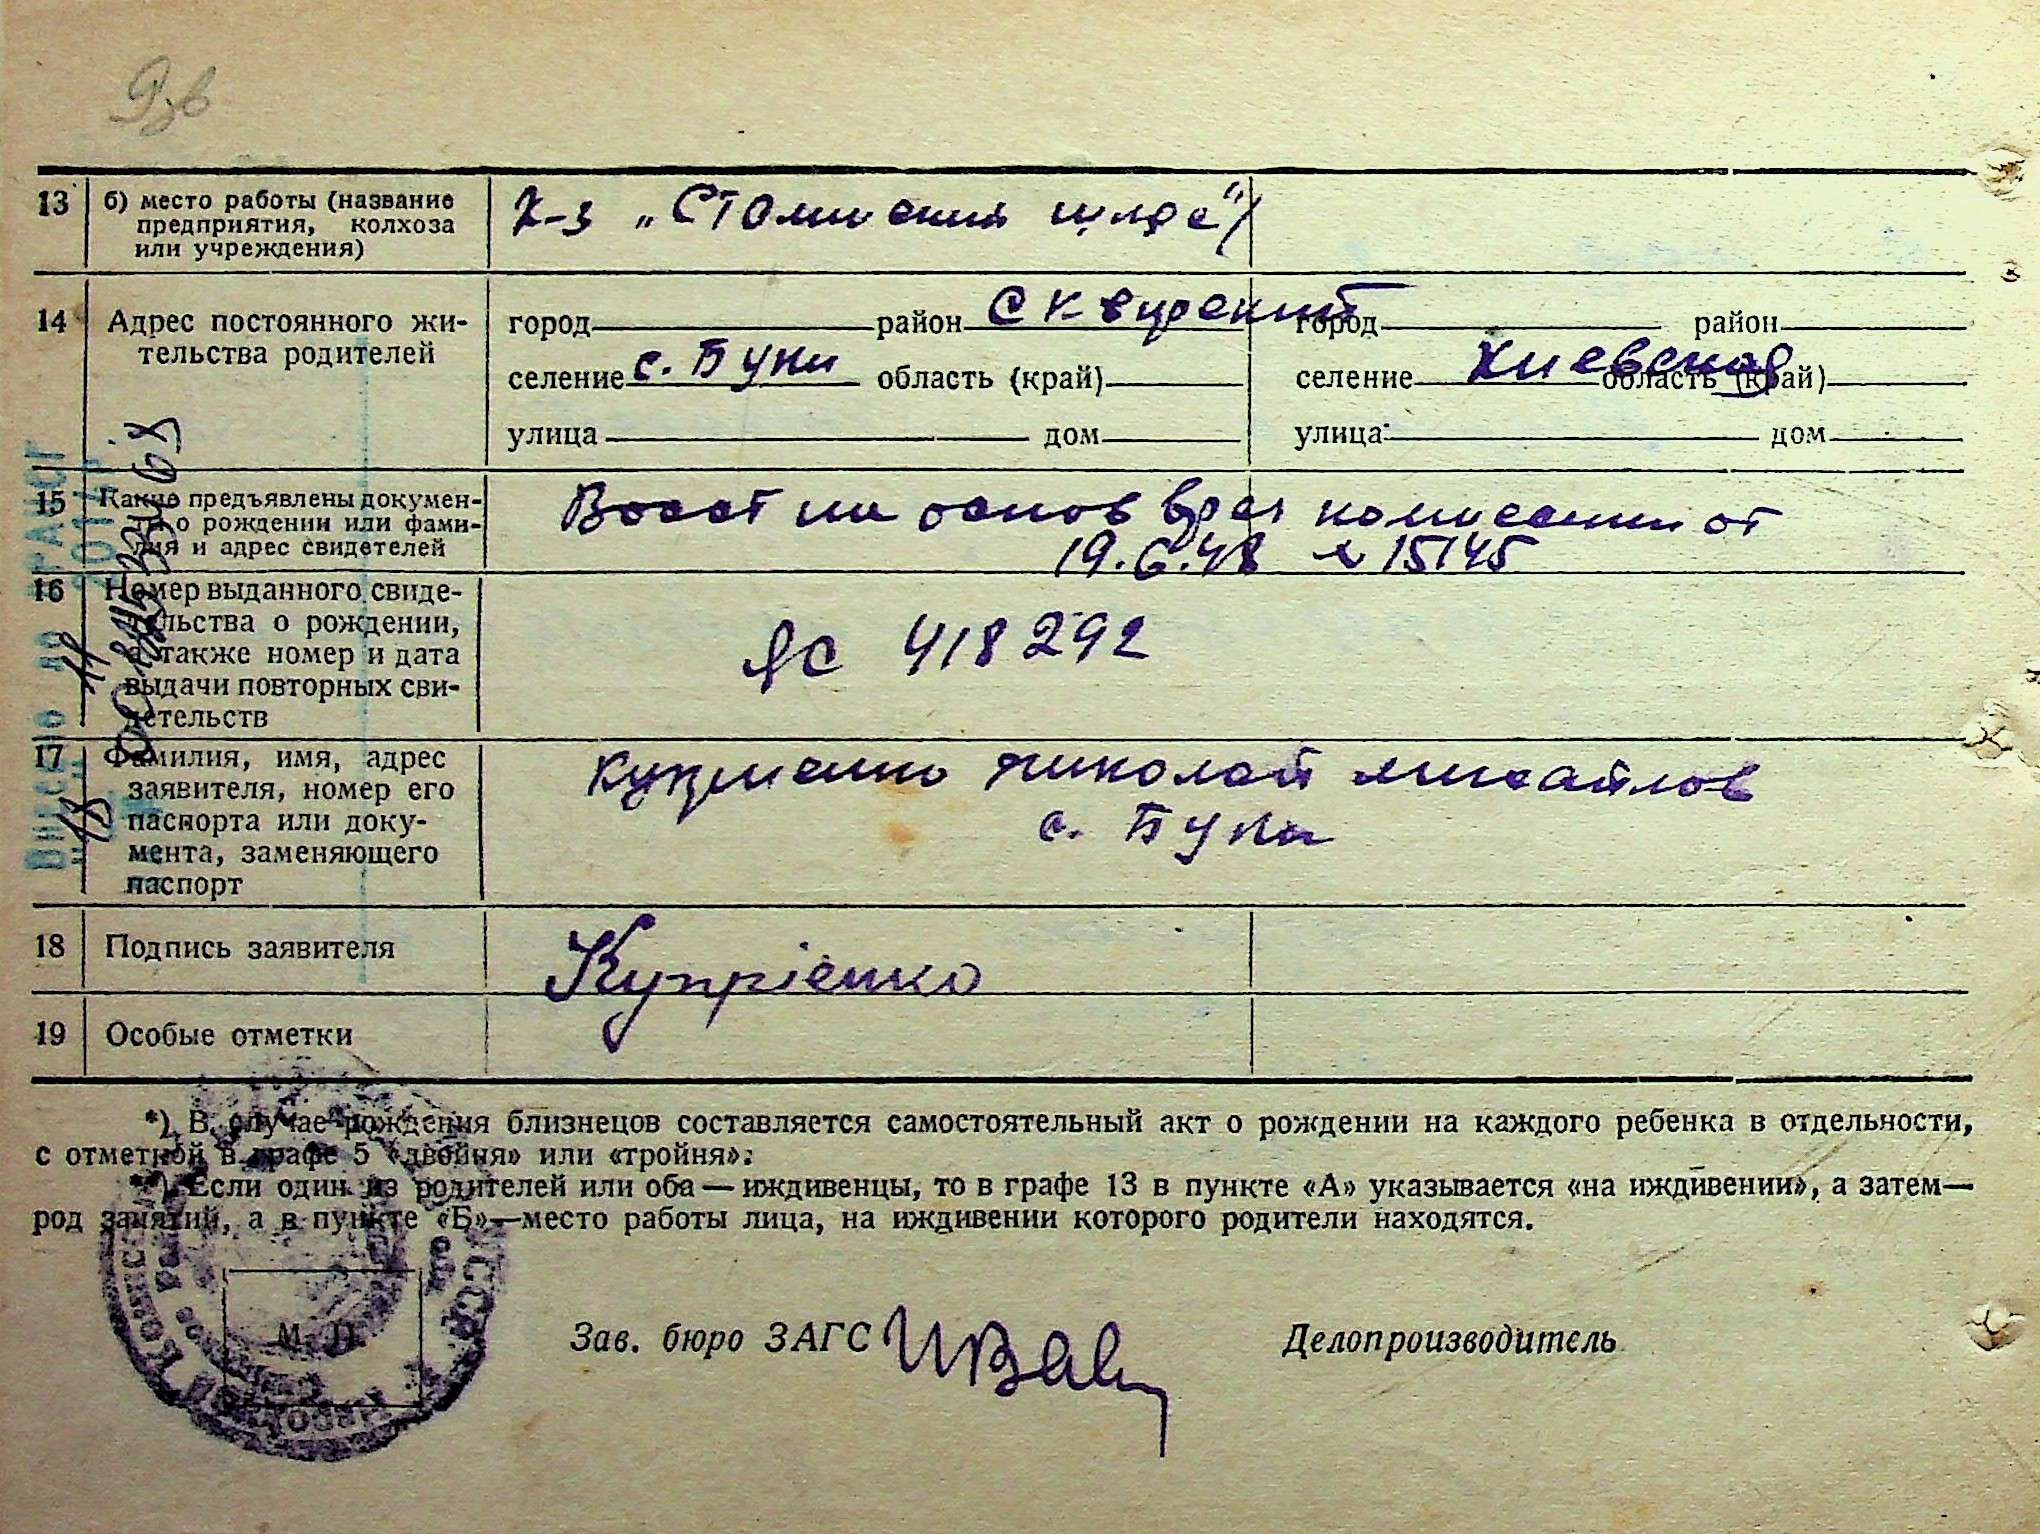 13 б) место работы (название предприятия, колхоза или учреждения) К-з „Сталинский шлях"
14 Адрес постоянного жительства родителей
город район Сквирский город район
селение с. Буки область (край) селение Киевская область (край)
улица дом улица дом
15 Какие предъявлены документы о рождении или фамилия и адрес свидетелей
Восст на основ врач комиссии от
19.6.48 № 15145
16 Номер выданного свидетельства о рождении, а также номер и дата выдачи повторных свидетельств
418292
17 Фамилия, имя, адрес заявителя, номер его паспорта или документа, заменяющего паспорт
Куприенко Николай Михайлов
с. Буки
18 Подпись заявителя Купріенко
19 Особые отметки
*) В случае рождения близнецов составляется самостоятельный акт о рождении на каждого ребенка в отдельности,
с отметкой в графе 5 «двойня» или «тройня».
**) Если один из родителей или оба — иждивенцы, то в графе 13 в пункте «А» указывается «на иждивении», а затем—
род занятий, а в пункте «Б»—место работы лица, на иждивении которого родители находятся.
М. П.
Зав. бюро ЗАГС Делопроизводитель